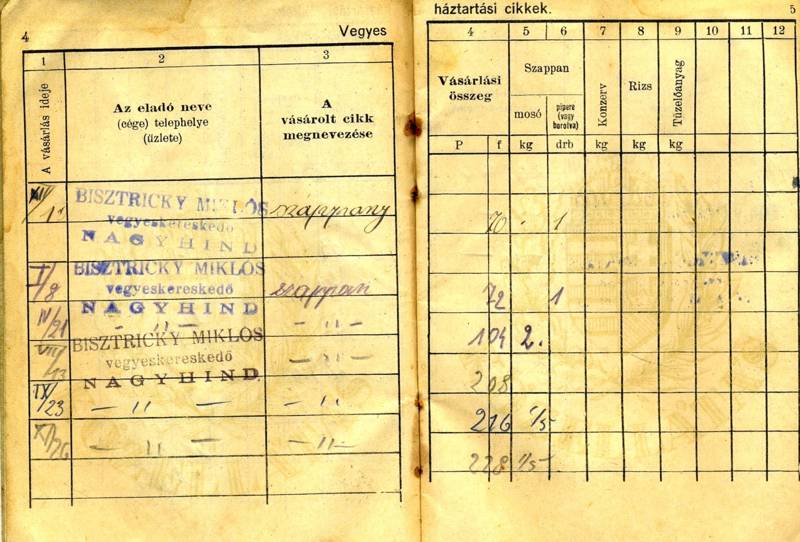 4 Vegyes
1 2 3
A vásárlás ideje
Az eladó neve
(cége) telephelye
(üzlete)
A
vásárolt cikk
megnevezése
XII/1
BISZTRICKY MIKLÓS
vegyeskereskedő
NAGYHIND
szappany
I/8
BISZTRICKY MIKLÓS
vegyeskereskedő
NAGYHIND
szappan
IV/21 — 〃 — — 〃 —
VIII/13
BISZTRICKY MIKLÓS
vegyeskereskedő
NAGYHIND
— 〃 —
IX/23 — 〃 — — 〃 —
— 〃 — — 〃 —
háztartási cikkek. 5
4 5 6 7 8 9 10 11 12
Vásárlási
összeg
Szappan
mosó
pipere
(vagy
borotva)
Konzerv
Rizs
Tüzelőanyag
P f kg drb kg kg kg
70 1
72 1
104 2.
208
216 1/5
228 1/5